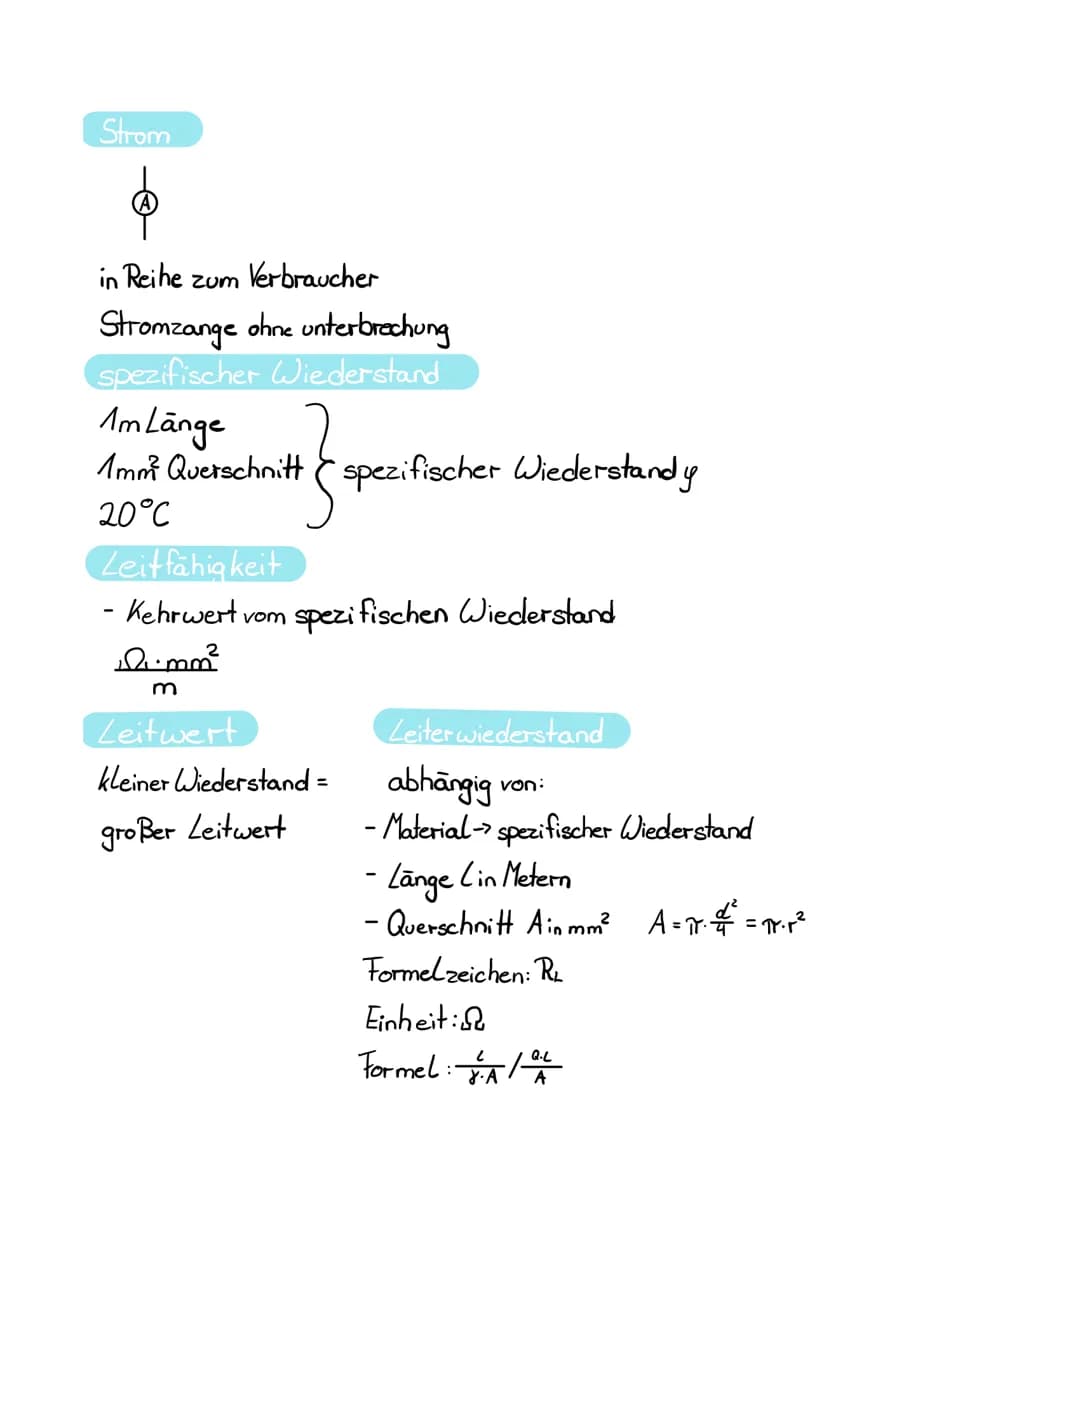 Strom
A
in Reihe zum Verbraucher
Stromzange ohne unterbrechung
spezifischer Wiederstand
1m Länge
1mm² Querschnitt } spezifischer Wiederstand y
20°C
Leitfähigkeit
- Kehrwert vom spezifischen Wiederstand
Ω·mm²
m
Leitwert
kleiner Wiederstand =
großer Leitwert
Leiterwiederstand
abhängig von:
- Material → spezifischer Wiederstand
- Länge l in Metern
- Querschnitt A in mm² A = π·d²/4 = π·r²
Formelzeichen: RL
Einheit: Ω
Formel: l/γ·A / ϱ·L/A